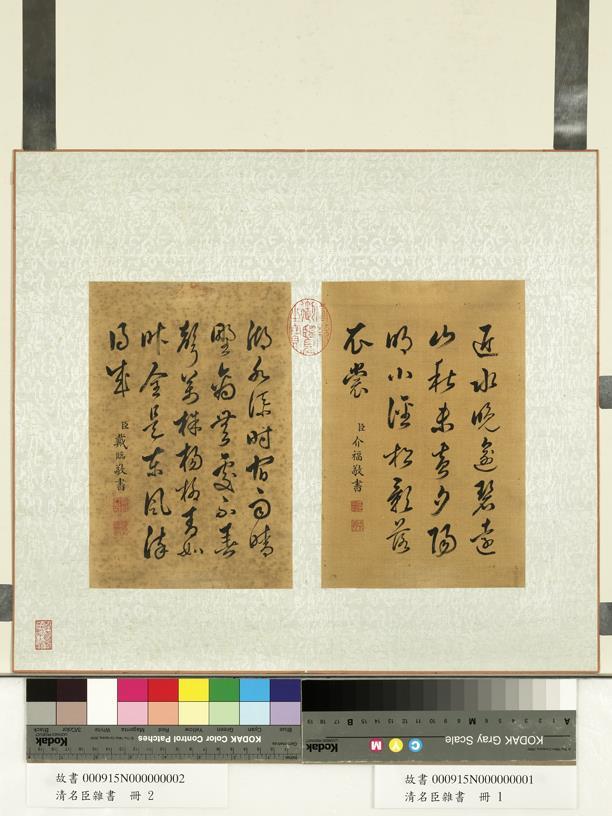 近水晚逾碧遠
山秋未黃夕陽
明小徑松影落
衣裳
臣介福敬書
湖水添時宿雨晴
野禽無處不春
聲萬株楊柳青如
許全是東風染
得成
臣戴臨敬書
Blue Cyan Green Yellow Red Magenta White 3/Color Black
KODAK Color Control Patches
Kodak
KODAK Gray Scale
C Y M
Kodak
A 1 2 3 4 5 6 M 8 9 10 11 12 13 14 15 B 17 18 19
故書 000915N000000002
清名臣雜書 冊 2
故書 000915N000000001
清名臣雜書 冊 1